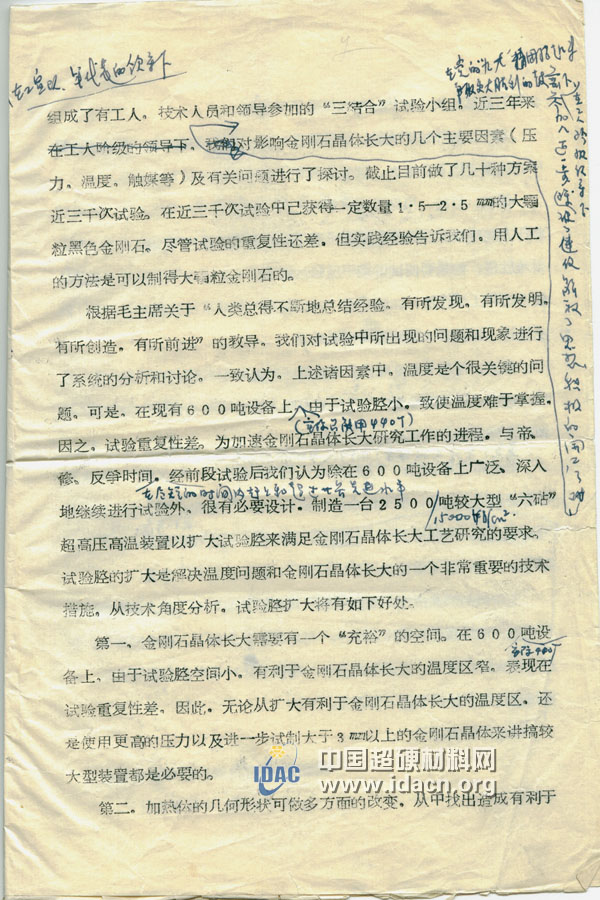 在工宣队、军代表的领导下
组成了有工人、技术人员和领导参加的“三结合”试验小组。近三年来
在工人阶级的领导下，我们对影响金刚石晶体长大的几个主要因素（压
力、温度、触媒等）及有关问题进行了探讨。截止目前做了几十种方案
近三千次试验。在近三千次试验中已获得一定数量1·5—2·5mm的大颗
粒黑色金刚石。尽管试验的重复性还差，但实践经验告诉我们，用人工
的方法是可以制得大颗粒金刚石的。
根据毛主席关于“人类总得不断地总结经验，有所发现，有所发明，
有所创造，有所前进”的教导，我们对试验中所出现的问题和现象进行
了系统的分析和讨论。一致认为，上述诸因素中，温度是个很关键的问
题，可是，在现有600吨设备上，由于试验腔小，致使温度难于掌握，
(实际只能用440T)
因之，试验重复性差。为加速金刚石晶体长大研究工作的进程，与帝、
修、反争时间，经前段试验后我们认为除在600吨设备上广泛、深入
地继续进行试验外，很有必要设计、制造一台2500吨较大型“六砧”
超高压高温装置以扩大试验腔来满足金刚石晶体长大工艺研究的要求，
试验腔的扩大是解决温度问题和金刚石晶体长大的一个非常重要的技术
措施。从技术角度分析，试验腔扩大将有如下好处。
第一、金刚石晶体长大需要有一个“充裕”的空间。在600吨设
备上，由于试验腔空间小，有利于金刚石晶体长大的温度区窄，表现在
试验重复性差。因此，无论从扩大有利于金刚石晶体长大的温度区，还
是使用更高的压力以及进一步试制大于3mm以上的金刚石晶体来讲搞较
大型装置都是必要的。
第二、加热体的几何形状可做多方面的改变，从中找出造成有利于
IDAC
中国超硬材料网
www.idacn.org